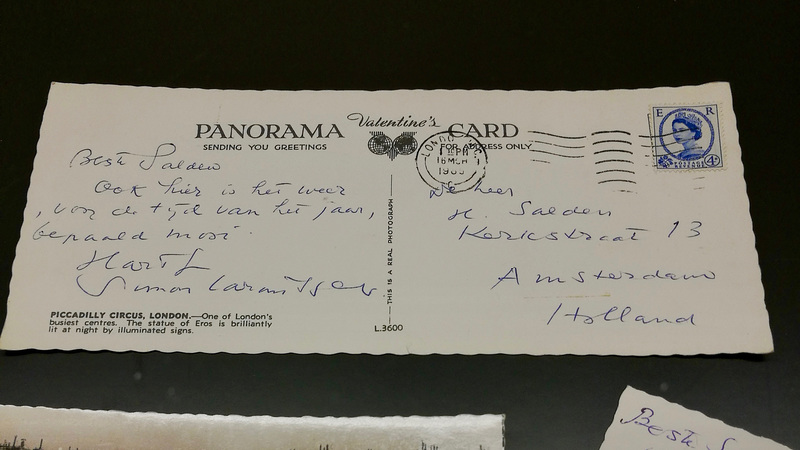 PANORAMA Valentine's CARD
SENDING YOU GREETINGS
FOR ADDRESS ONLY
Beste Salden
Ook hier is het weer
, voor de tijd van het jaar,
bepaald mooi.
Hartl
Simon
PICCADILLY CIRCUS, LONDON.—One of London's
busiest centres. The statue of Eros is brilliantly
lit at night by illuminated signs.
THIS IS A REAL PHOTOGRAPH
L.3600
LONDON
PM
16 MCH
E R
POSTAGE
REVENUE
4D
De heer
H. Salden
Kerkstraat 13
Amsterdam
Holland
Beste S